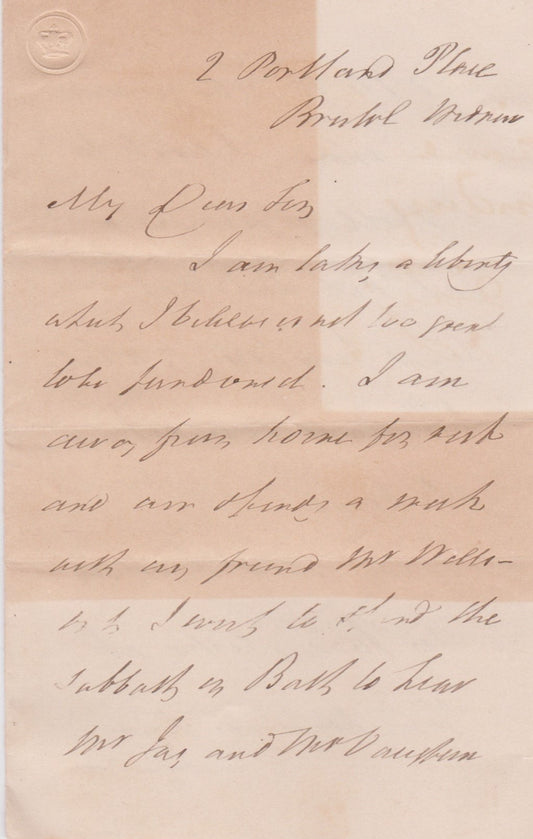 2 Portland Place
Bristol
My Dear Sir
I am taking a liberty
which I believe is not too great
to be pardoned. I am
away from home for rest
and am spending a week
with my friend Mr Wills-
I wish to spend the
sabbath in Bath to hear
Mr Jay and Mr Vaughan